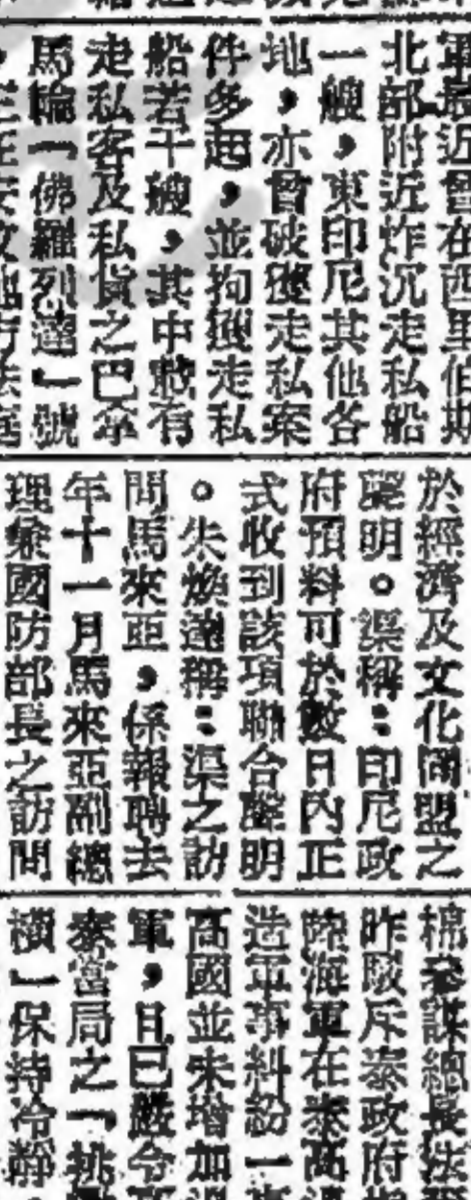 軍最近曾在西里伯斯
北部附近炸沉走私船
一艘，東印尼其他各
地，亦曾破獲走私案
件多起，並拘獲走私
船若干艘，其中載有
走私客及私貨之巴拿
馬輪「佛羅列達」號
於經濟及文化同盟之
聲明。渠稱：印尼政
府預料可於數日內正
式收到該項聯合聲明
。朱煥達稱：渠之訪
問馬來亞，係報聘去
年十一月馬來亞副總
理兼國防部長之訪問
棉參謀總長法
昨駁斥泰政府
陸海軍在泰高邊
造軍事糾紛一
高國並未增加
軍，且已嚴令
泰當局之「挑
橫」保持冷靜